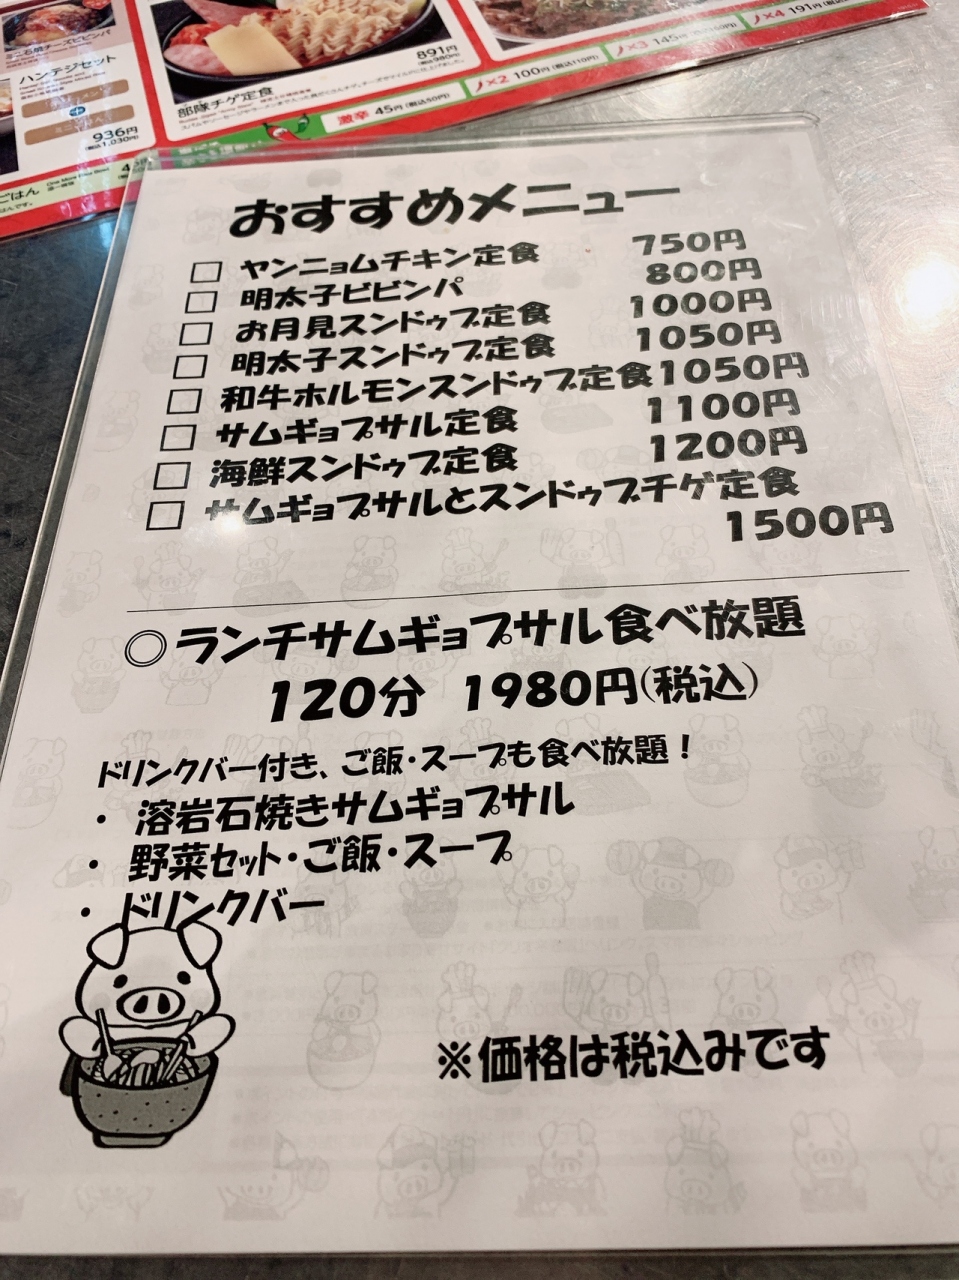 ミニ石焼チーズビビンバ
ハンテジセット
936円
(税込1,030円)
891円
(税込980円)
部隊チゲ定食
激辛 45円(税込50円)
×2 100円(税込110円)
×3 145円
×4 191円
ごはん
おすすめメニュー
□ ヤンニョムチキン定食 750円
□ 明太子ビビンパ 800円
□ お月見スンドゥブ定食 1000円
□ 明太子スンドゥブ定食 1050円
□ 和牛ホルモンスンドゥブ定食 1050円
□ サムギョプサル定食 1100円
□ 海鮮スンドゥブ定食 1200円
□ サムギョプサルとスンドゥブチゲ定食
1500円
◎ランチサムギョプサル食べ放題
120分 1980円(税込)
ドリンクバー付き、ご飯・スープも食べ放題！
・ 溶岩石焼きサムギョプサル
・ 野菜セット・ご飯・スープ
・ ドリンクバー
※価格は税込みです